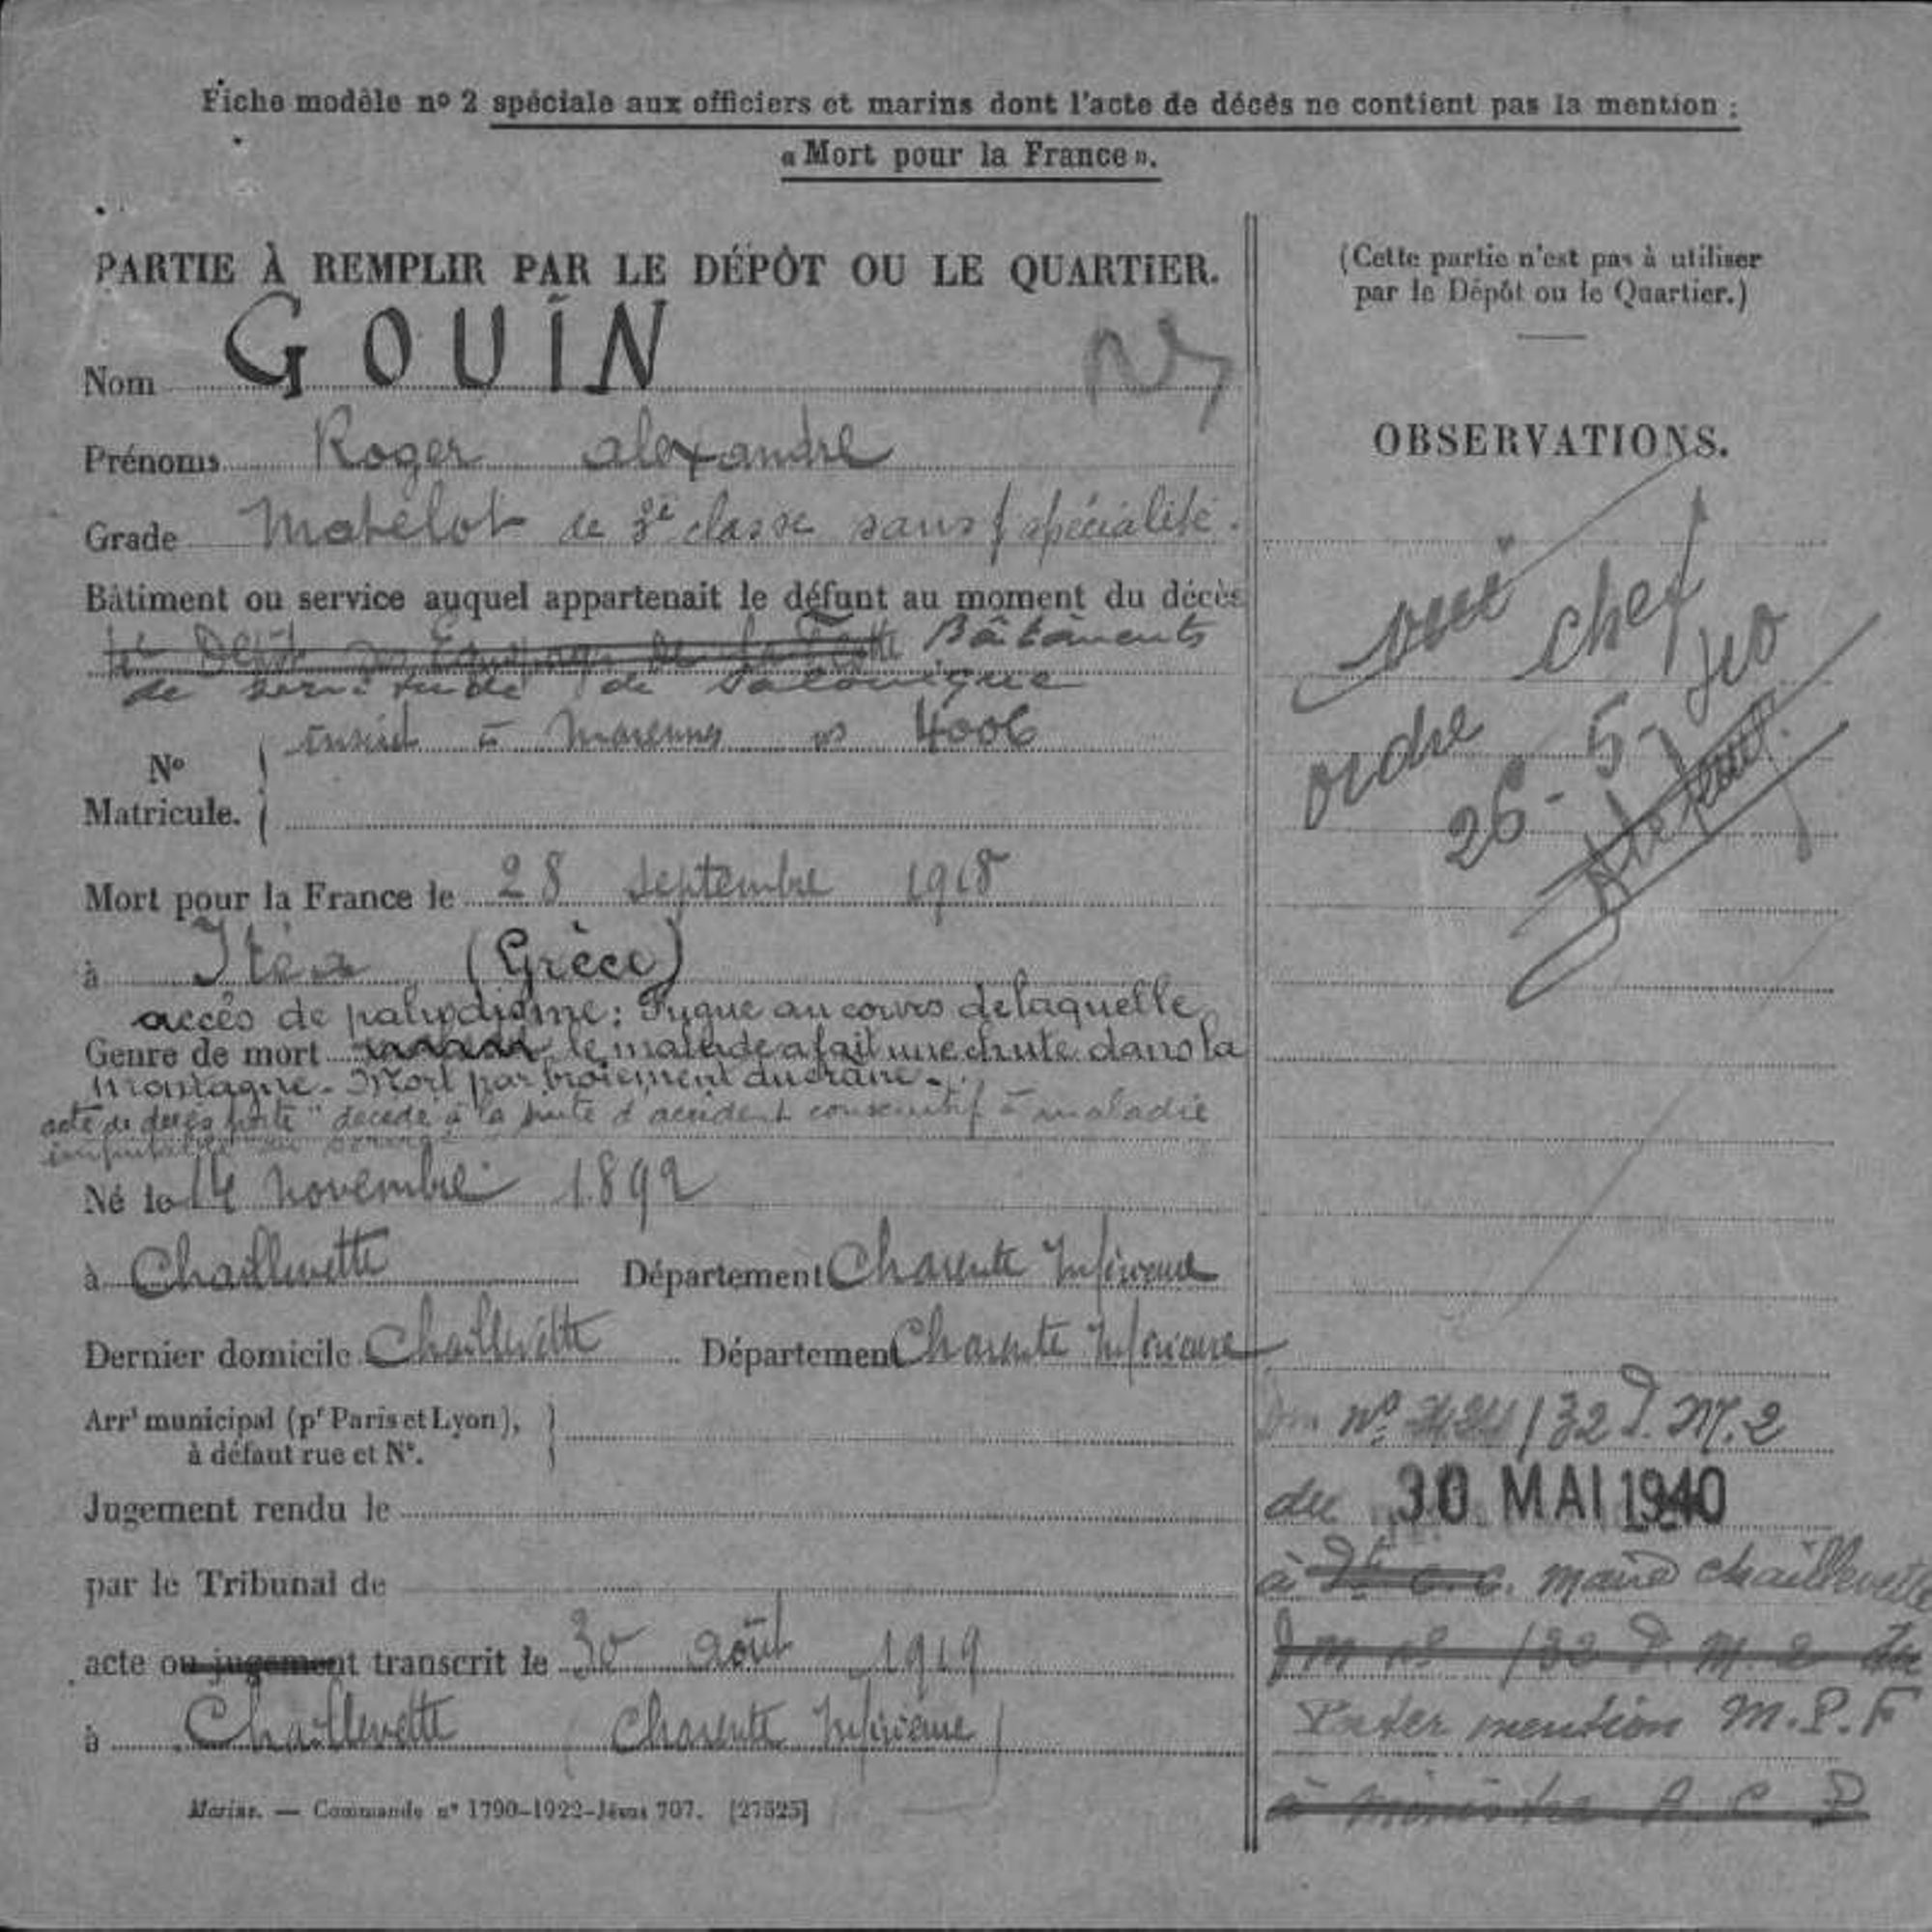 Fiche modèle nº 2 spéciale aux officiers et marins dont l'acte de décés ne contient pas la mention :
« Mort pour la France ».
PARTIE À REMPLIR PAR LE DÉPÔT OU LE QUARTIER.
Nom GOUIN
Prénoms Roger alexandre
Grade Matelot de 3e classe sans spécialité.
Bâtiment ou service auquel appartenait le défunt au moment du décès
Bâtiments
de servitude de Salonique
inscrit à Marennes nº 4006
Nº
Matricule.
Mort pour la France le 28 septembre 1918
à Itéa (Grèce)
accès de paludisme : Fugue au cours de laquelle
Genre de mort le malade a fait une chute dans la
montagne - Mort par broiement du crane -
acte de décès porte "décédé à la suite d'accident consécutif à maladie
imputable au service
Né le 14 novembre 1892
à Chaillevette Département Charente Inférieure
Dernier domicile Chaillevette Département Charente Inférieure
Arrt municipal (pr Paris et Lyon),
à défaut rue et Nº.
Jugement rendu le
par le Tribunal de
acte ou jugement transcrit le 30 août 1919
à Chaillevette (Charente Inférieure)
Marine. — Commande nº 1790-1922-Jésus 707. [27525]
(Cette partie n'est pas à utiliser
par le Dépôt ou le Quartier.)
OBSERVATIONS.
oui
ordre chef
26-5-40
Nº /32 D. M. 2
du 30 MAI 1940
à maire Chaillevette
/32 D. M. 2 du
Porter mention M.P.F
à ministre A C P